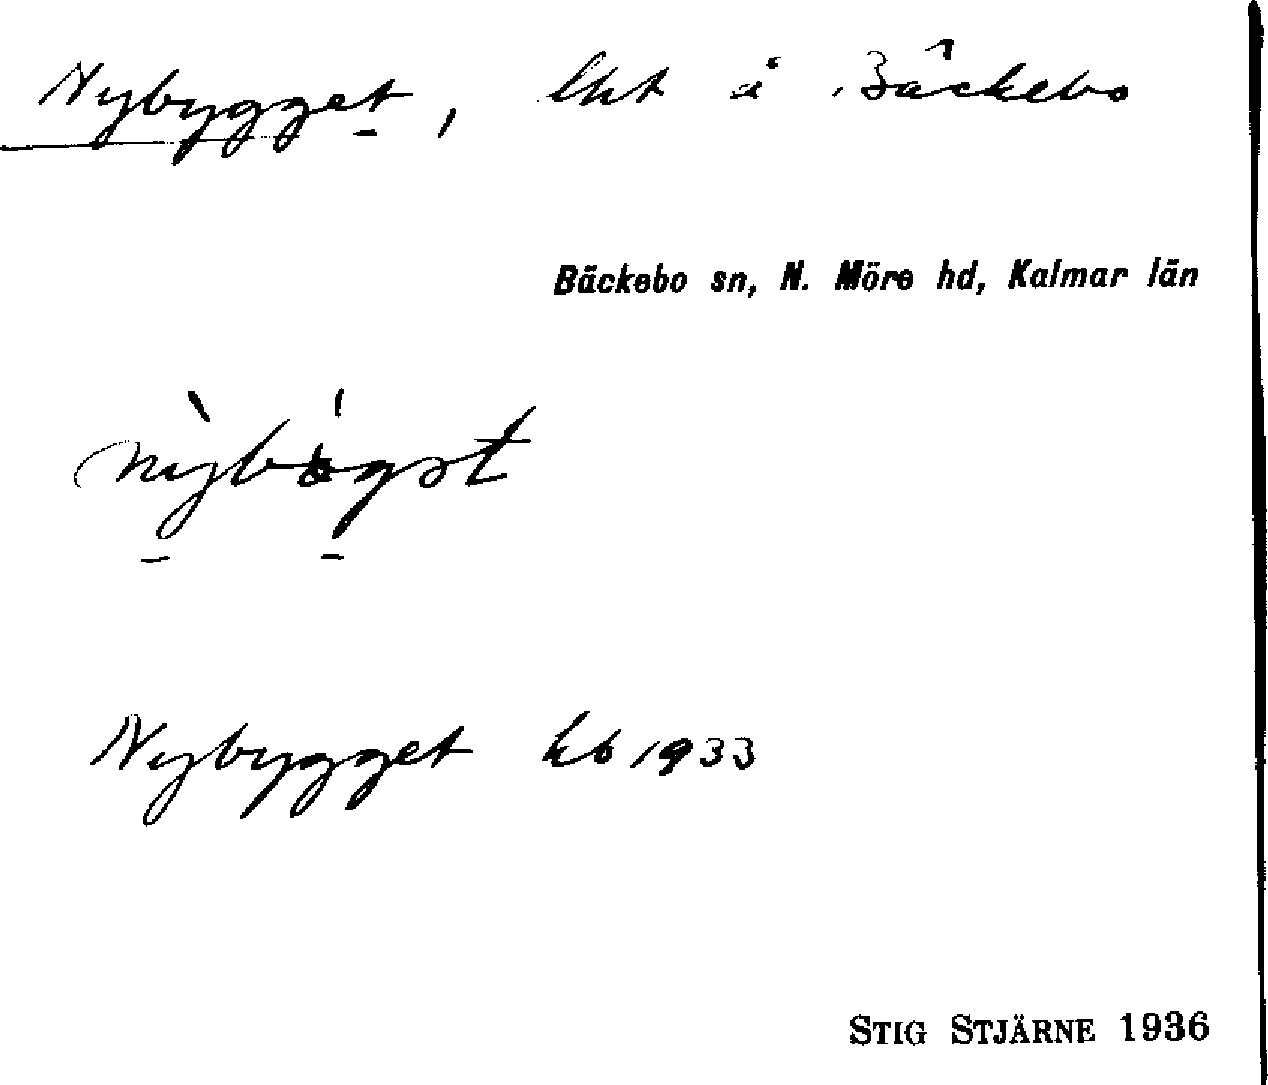 Nybygget, lht å Bäckebo
Bäckebo sn, N. Möre hd, Kalmar län
Nybygget kb 1933
STIG STJÄRNE 1936